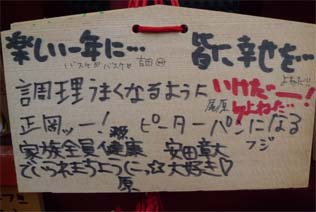 楽しい一年に… 皆に幸せを…
バスケがバスケを 吉田
調理うまくなるように いけだー!
尾原
正岡ッー! ピーターパンになる
フジ
家族全員健康 安田章大
でいられますように☆大好き♡
原